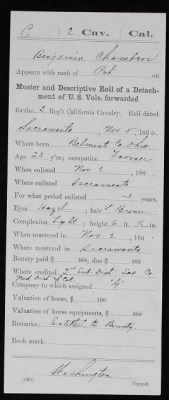 C | 2 Cav. | Cal.
Benjamin Chambers
Appears with rank of Pvt. on
Muster and Descriptive Roll of a Detach-
ment of U. S. Vols. forwarded
for the 2 Reg't California Cavalry. Roll dated
Sacramento Nov 5, 1864.
Where born Belmont Co. Ohio
Age 23 y'rs; occupation Farmer
When enlisted Nov 2, 186
Where enlisted Sacramento
For what period enlisted 3 years.
Eyes Hazel; hair Brown
Complexion Light; height 5 ft. in.
When mustered in Nov 2, 186
Where mustered in Sacramento
Bounty paid $ 100; due $ 100
Where credited 2nd Sub. Dist. Sac Co
Company to which assigned
Valuation of horse, $ 100
Valuation of horse equipments, $ 100
Remarks: Entitled to Bounty
Book mark:
Washington
Copyist.